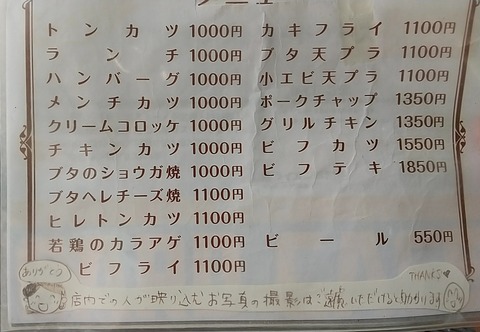 メニュー
トンカツ 1000円
ランチ 1000円
ハンバーグ 1000円
メンチカツ 1000円
クリームコロッケ 1000円
チキンカツ 1000円
ブタのショウガ焼 1000円
ブタヘレチーズ焼 1100円
ヒレトンカツ 1100円
若鶏のカラアゲ 1100円
エビフライ 1100円
カキフライ 1100円
ブタ天プラ 1100円
小エビ天プラ 1100円
ポークチャップ 1350円
グリルチキン 1350円
ビフカツ 1550円
ビフテキ 1850円
ビール 550円
ありがとう
THANKS♥
店内での人が映り込むお写真の撮影はご遠慮いただけると助かります